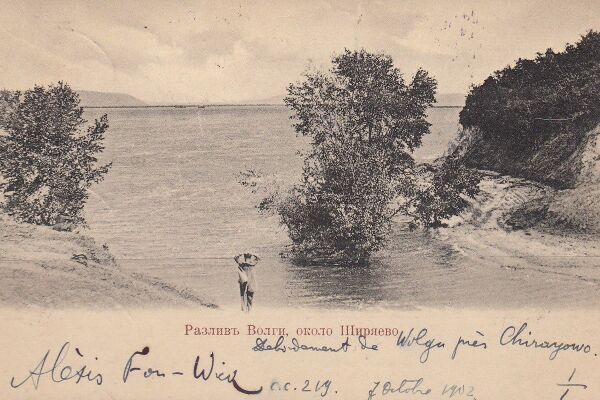 Разливъ Волги, около Ширяево
Debordement de Wolga près Chirayowo.
Alexis Fon-Wick
a.c. 219. 7 Octobre 1902
1/1